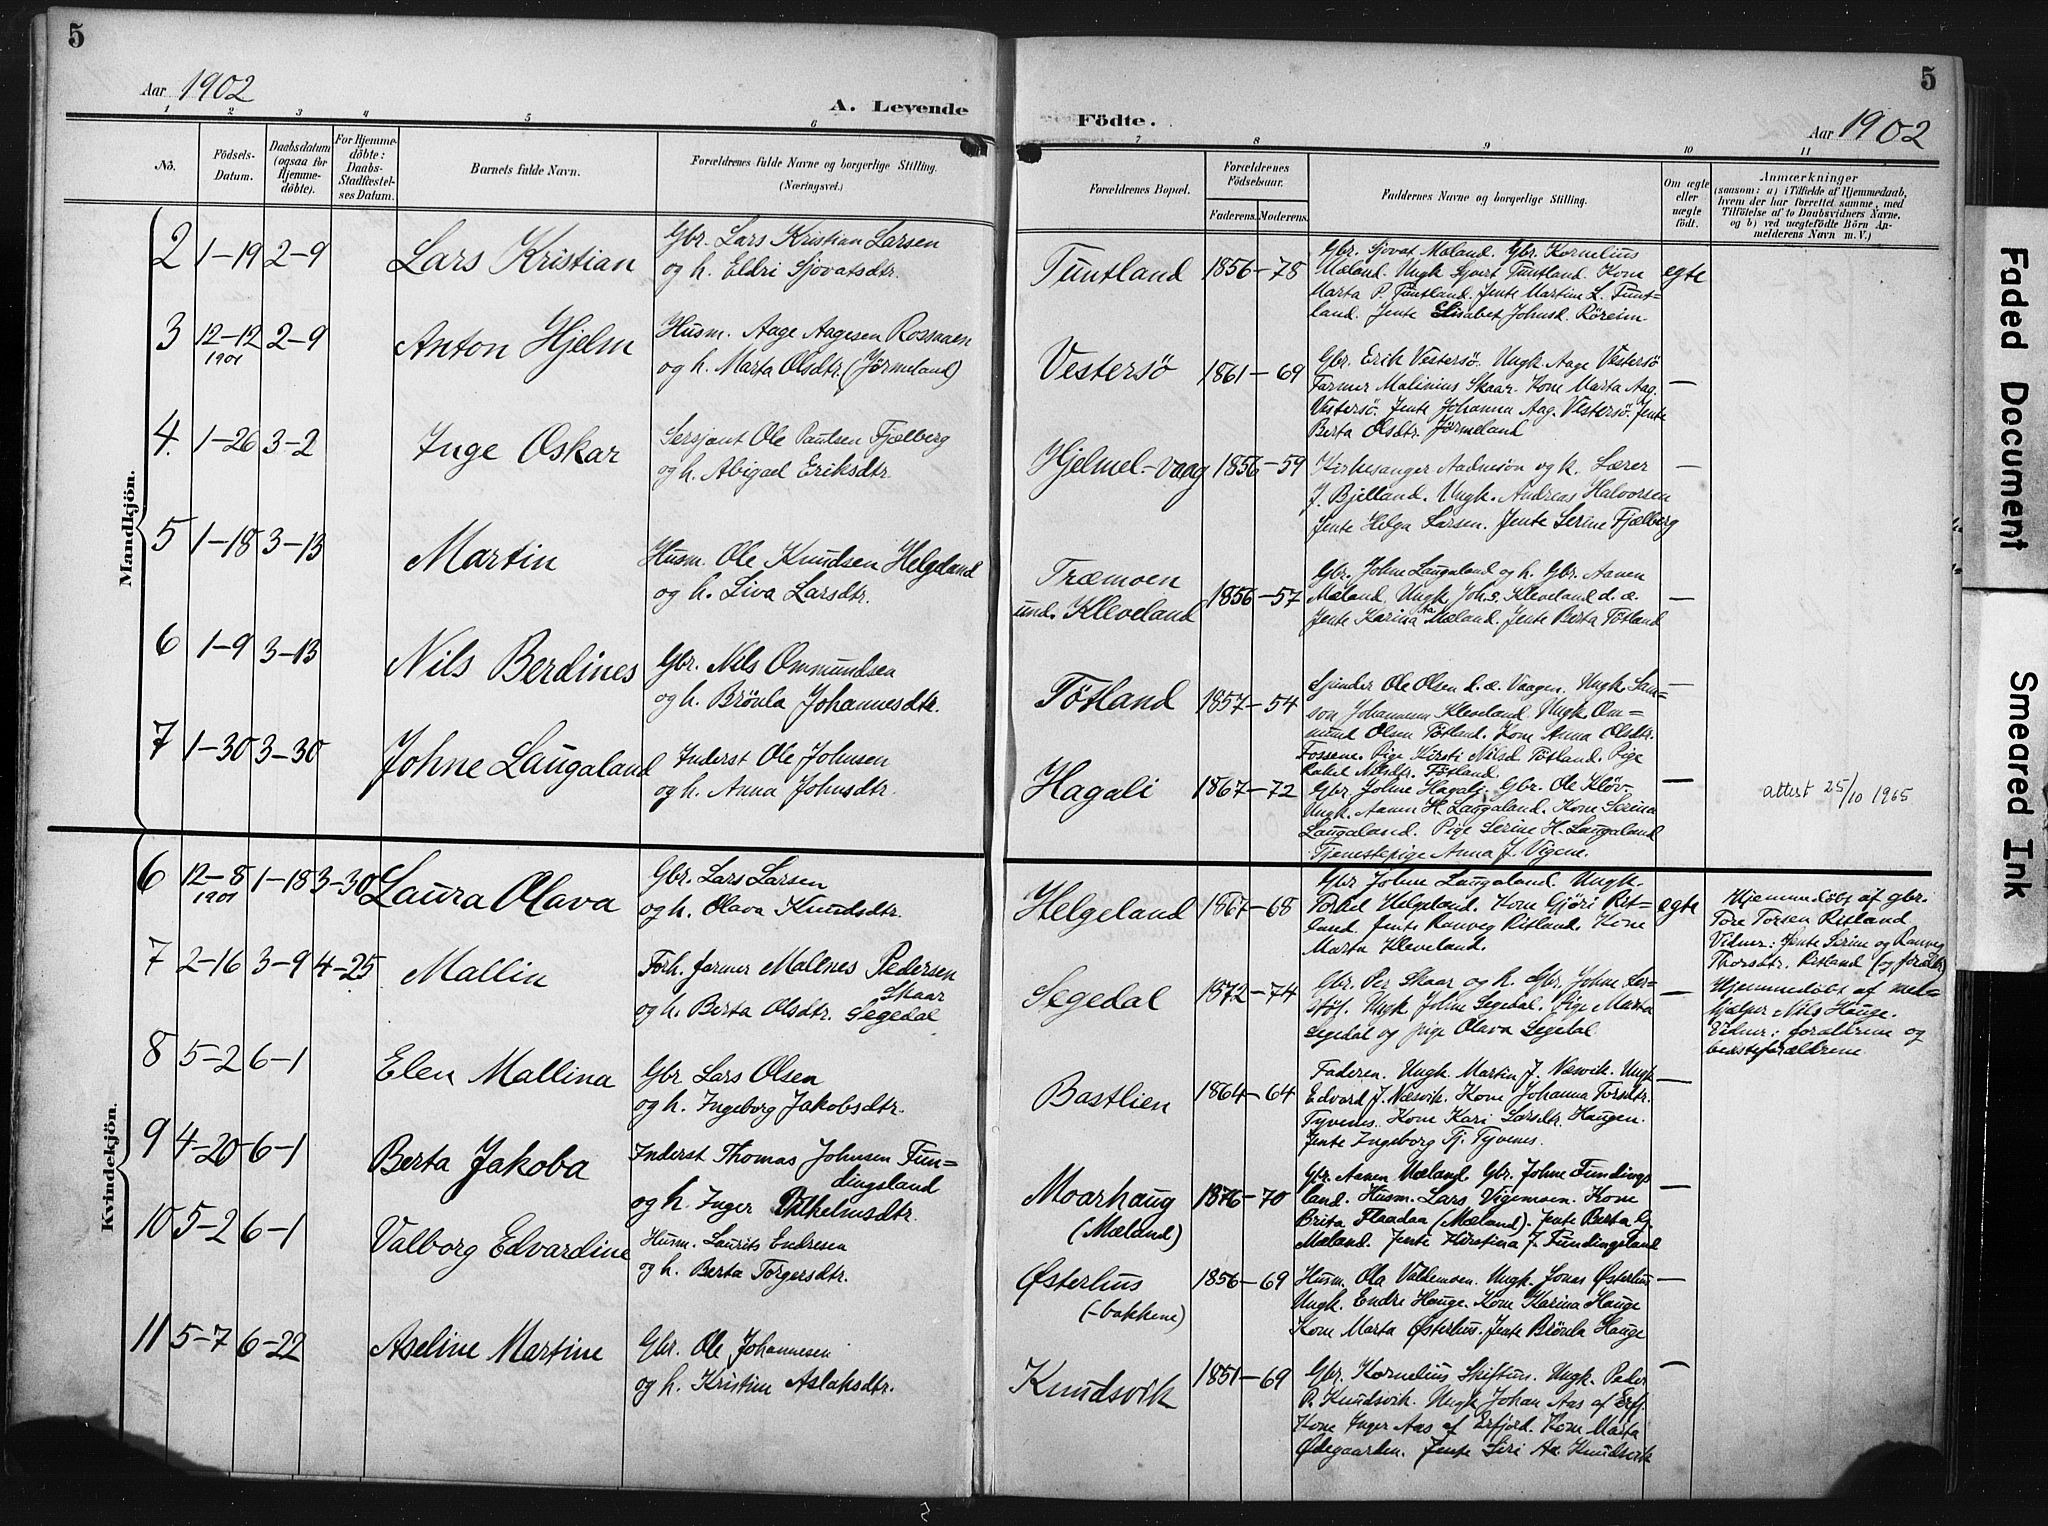 5
Aar 1902
A. Levende
1 2 3 4 5 6
No.
Födsels-Datum.
Daabsdatum (ogsaa for Hjemme-döbte).
For Hjemme-döbte: Daabs-Stadfæstel-ses Datum.
Barnets fulde Navn.
Forældrenes fulde Navne og borgerlige Stilling. (Næringsvei.)
Mandkjön.
2 1-19 2-9 Lars Kristian Gbr. Lars Kristian Larsen
og h. Eldri Sjovatsdtr.
3 12-12 1901 2-9 Anton Hjelm Husm. Aage Aagesen Rosmoen
og h. Marta Olsdtr. (Jörmeland)
4. 1-26 3-2 Inge Oskar Sersjant Ole Paulsen Fjælberg
og h. Abigael Eriksdtr.
5 1-18 3-13 Martin Husm. Ole Knudsen Helgeland
og h. Siva Larsdtr.
6 1-9 3-13 Nils Berdines Gbr. Nils Ommundsen
og h. Brönla Johannesdtr.
7 1-30 3-30 Johne Laugaland Inderst Ole Johnsen
og h. Anna Johnsdtr.
Kvindekjön.
6 12-8 1901 1-18 3-30 Laura Olava Gbr. Lars Larsen
og h. Olava Knudsdtr.
7 2-16 3-9 4-25 Mallin Forh. farmer Mallnes Pedersen
Skaar
og h. Berta Olsdtr. Segedal
8 5-2 6-1 Elen Mallina Gbr Lars Olsen
og h. Ingeborg Jakobsdtr.
9 4-20 6-1 Berta Jakoba Inderst Thomas Johnsen Fun-
dingsland
og h. Inger Vilhelmsdtr.
10 5-2 6-1 Valborg Edvardine Husm. Laurits Endresen
og h. Berta Torgersdtr.
11 5-7 6-22 Aseline Martine Gbr. Ole Johannesen
og h. Kristine Aslaksdtr.
5
Födte.
Aar 1902
7 8 9 10 11
Forældrenes Bopæl.
Forældrenes Födselsaar.
Faderens. Moderens.
Faddernes Navne og borgerlige Stilling.
Om ægte eller uægte födt.
Anmærkninger
(saasom: a) i Tilfælde af Hjemmedaab,
hvem der har forrettet samme, med
Tilföielse af to Daabsvidners Navne.
og b) ved uægtefödte Börn An-
melderens Navn m. V.)
Tuntland 1856-78 Gbr. Sjovat Mæland. Gbr. Kornelius
Mæland. Ungk. Sjvert Tuntland. Kone egte
Marta P. Tuntland. Jente Martine L. Tunt-
land. Jente Elisabet Johnsd. Röreim.
Vestersö 1861-69 Gbr. Erik Vestersö. Ungk. Aage Vestersö
Farmer Malinius Skaar. Kone Marta Aag. —
Vestersö. Jente Johanna Aag. Vestersö. Jente
Berta Olsdtr. Jörmeland
Hjelmel-vaag 1856-59 Kirkesanger Aadnesön og h. Lærer —
J. Bjelland. Ungk. Andreas Halvorsen
Jente Helga Larsen. Jente Serine Fjælberg
Træmoen
und. Kleveland 1856-57 Gbr. Johne Laugaland og h. Gbr. Aanen
Mæland. Ungk Joh.s. Kleveland d. æ. —
Jente Karina Mæland. Jente Berta Tötland
Tötland 1857-54 Gjender Ole Olsen d. æ. Vaagen. Ungk Sam- —
son Johannesen Kleveland. Ungk Om-
mund Olsen Tötland. Kone Anna Olsdtr.
Fossene. Pige Kirsti Nilsd Tötland. Pige
Rakel Nilsdtr. Tötland
Hagali 1867-72 Gbr Johne Hagali. Gbr. Ole Klöv- —
Ungk. Aanen H. Laugaland. Kone Serina
Laugaland. Pige Serine H. Laugaland
Tjenestepige Anna J. Vigene.
attest 25/10 1965
Helgeland 1867-68 Gbr Johne Laugaland. Ungk.
Torkel Helgeland. Kone Gjöri Rit- egte
land. Jente Ranveg Ritland. Kone
Marta Kleveland.
Hjemmedöbt af gbr.
Tore Torsen Ritland
Vidner: Jente Serine og Ranveg
Thorsdtr. Ritland (og foraldr)
Segedal 1872-74 Gbr. Per Skaar og h. Gbr. Johne Ler-
stöl. Ungk Johne Segedal. Pige Marta
Segedal og pige Olava Segedal
Hjemmedöbt af med-
hjælper Nils Hauge.
Vidner: foraldrene og
bedsteforældrene
Bastlien 1864-64 Faderen. Ungk. Martin J. Næsvik. Ungk —
Edvard J. Næsvik. Kone Johanna Torsdtr.
Tyvenes. Kone Kari Larsdtr. Haugen.
Jente Ingeborg Tj. Tyvenes.
Moarhaug
(Mæland) 1876-70 Gbr. Aanen Mæland. Gbr. Johne Fundings
land. Husm. Lars Vigemoen. Kone —
Brita Flaadaa (Mæland). Jente Berta G.
Mæland. Jente Kirstina J. Fundingsland
Østerhus
(-bakkene) 1856-69 Husm. Ola Valdemoen. Ungk. Jonas Østerhus —
Ungk. Endre Hauge. Kone Karina Hauge
Kone Marta Østerhus. Jente Brönla Hauge
Knudsvik 1851-69 Gbr. Kornelius Skiftun. Ungk. Peder —
P. Knudsvik. Ungk Johan Aas af Erfj.
Kone Inger Aas af Erfjord. Kone Marta
Ødegaarden. Jente Siri Aa. Knudsvik
Faded Document
Smeared Ink